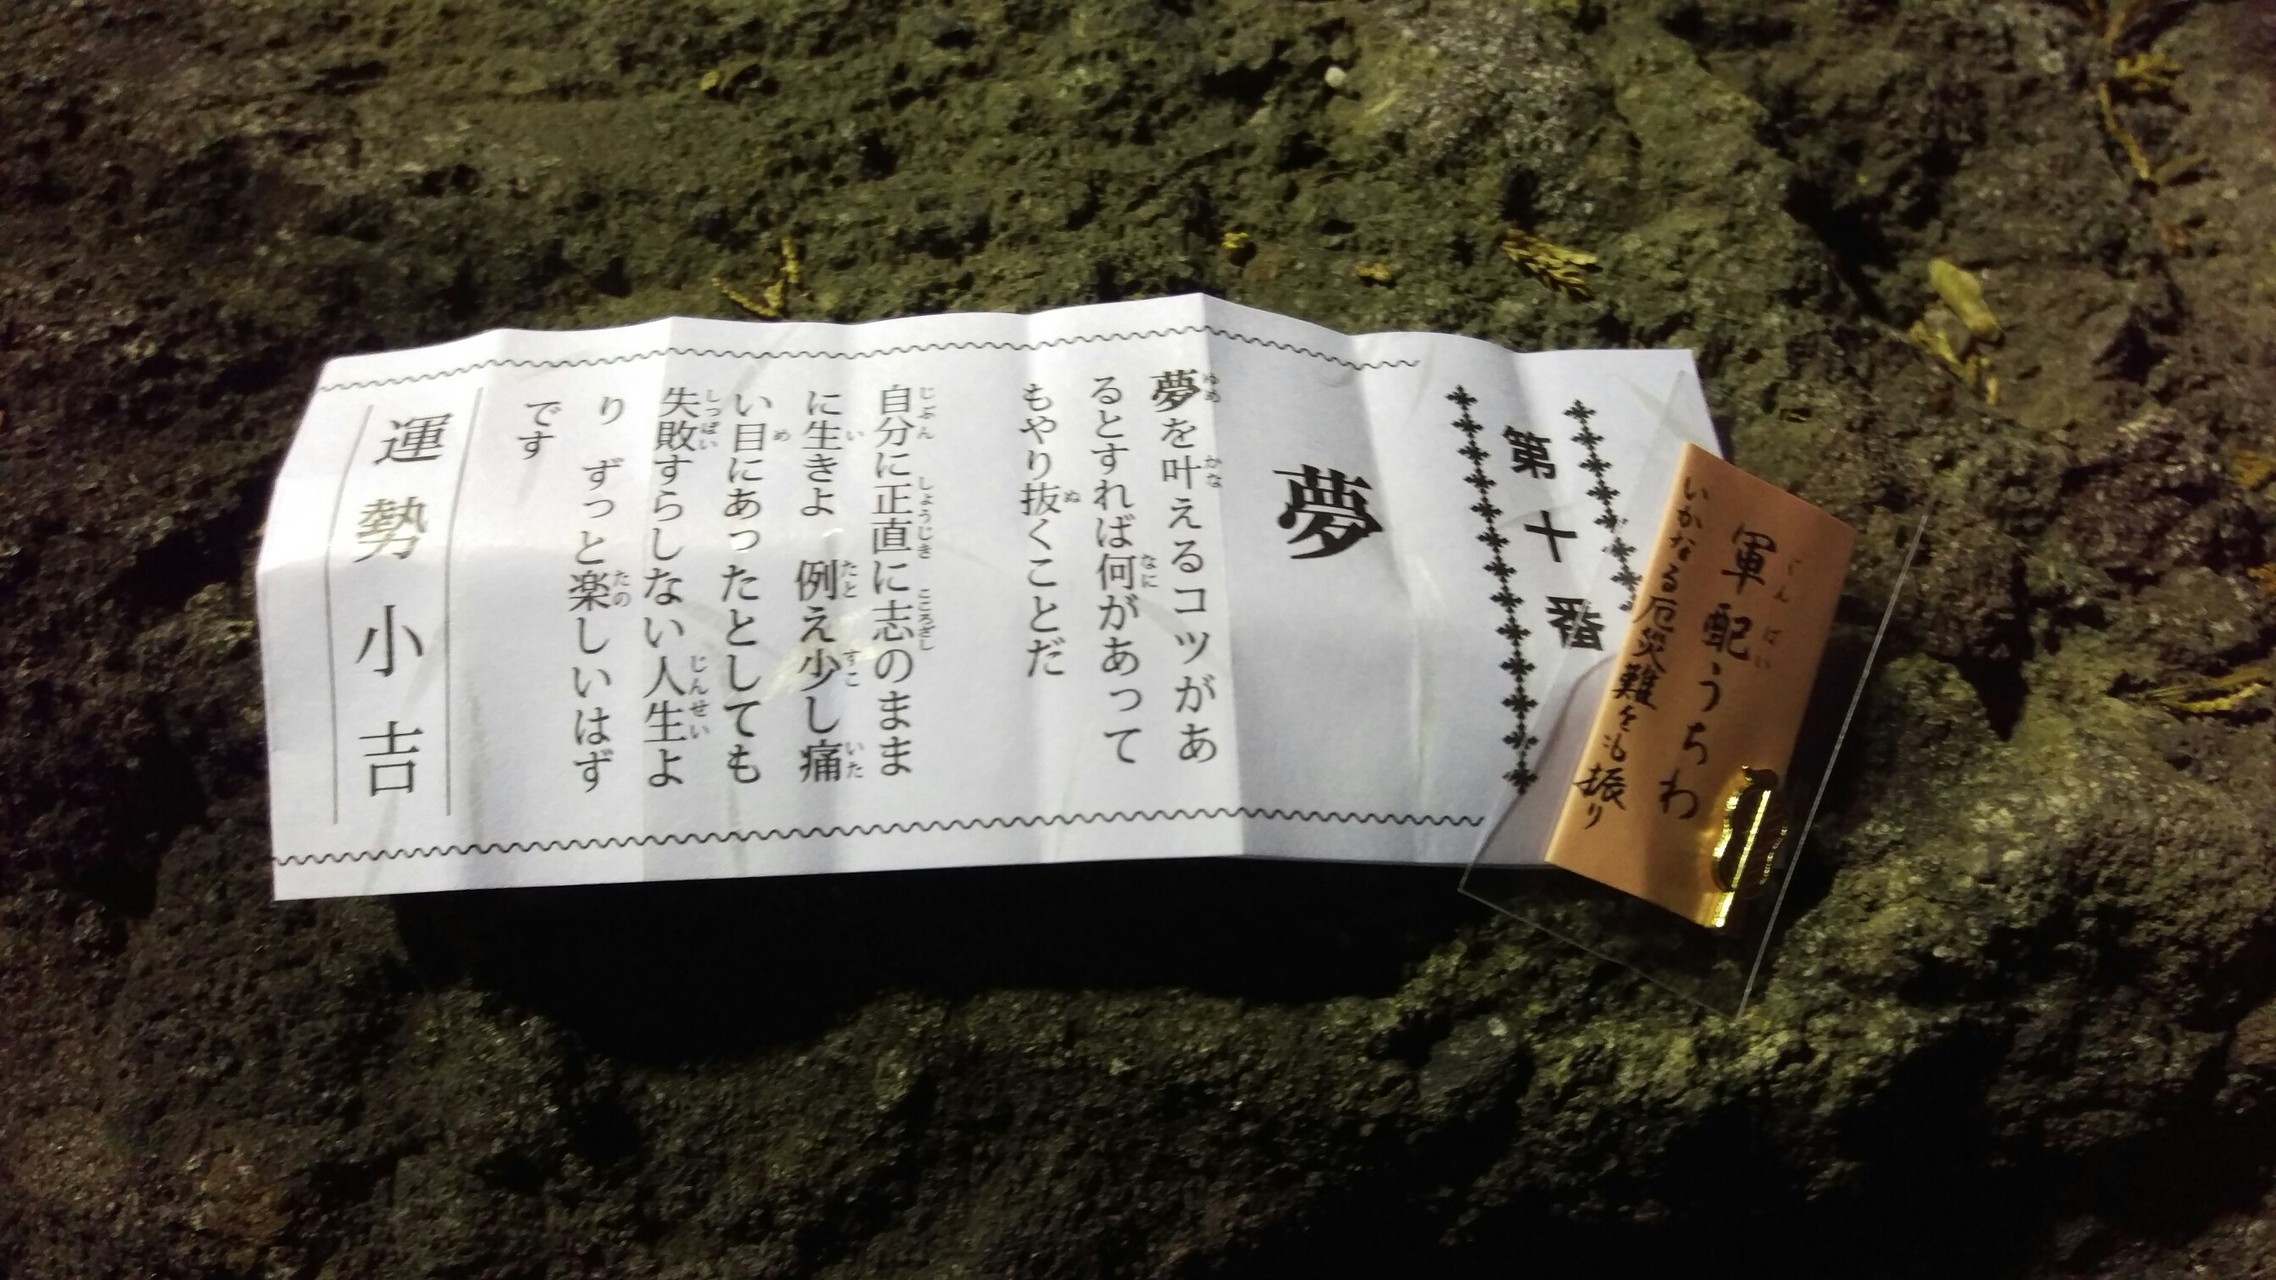 第十番
夢
夢を叶えるコツがあ
るとすれば何があって
もやり抜くことだ
自分に正直に志のまま
に生きよ 例え少し痛
い目にあったとしても
失敗すらしない人生よ
り ずっと楽しいはず
です
運勢小吉
軍配うちわ
いかなる厄災難をも振り